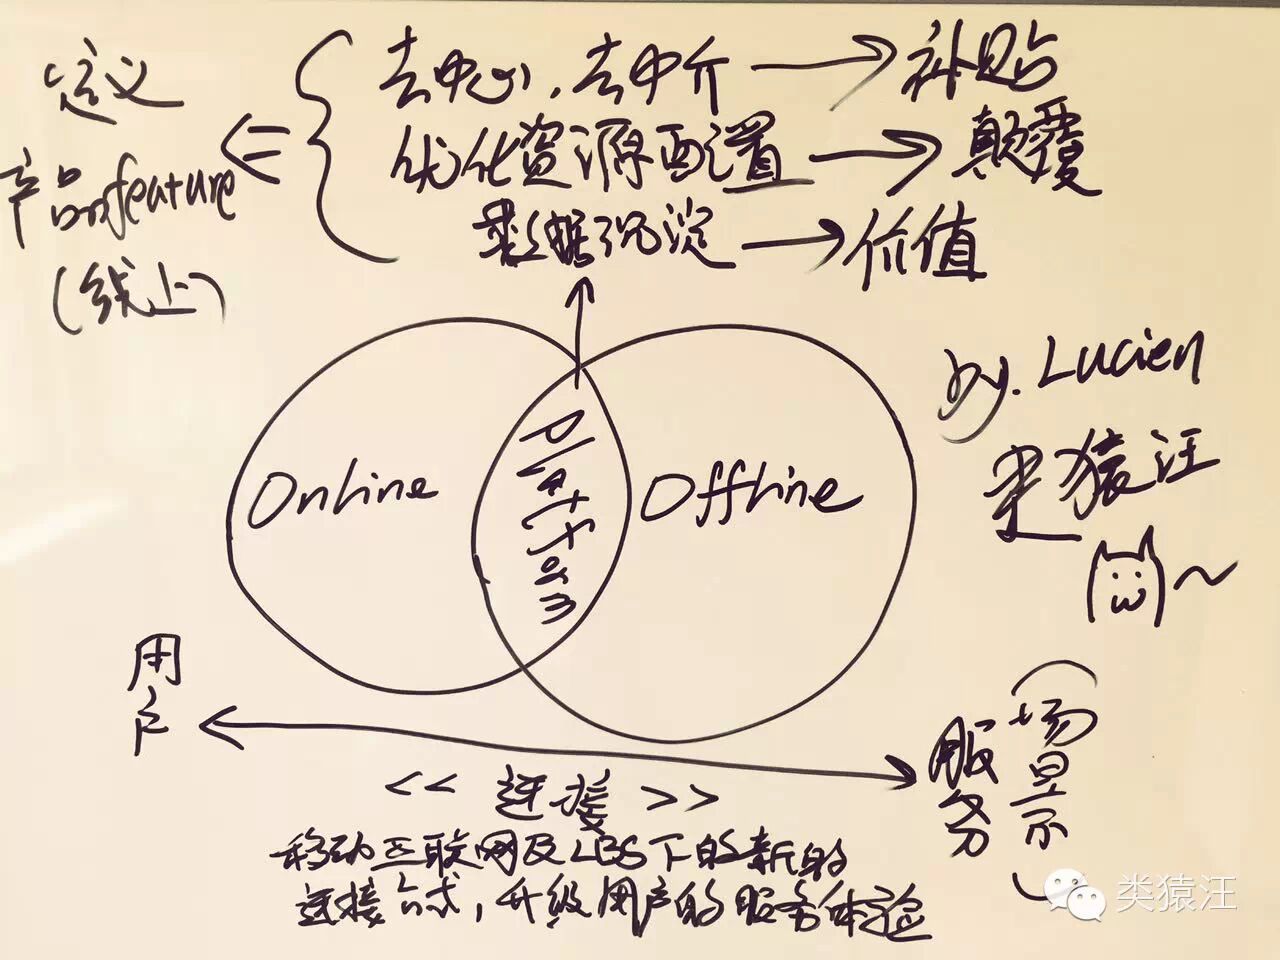 定义
产品feature
(线上)
去中心,去中介 → 补贴
优化资源配置 → 颠覆
数据沉淀 → 价值
Online
Platform
Offline
by. Lucien
类猿汪
用户
服务
(场景)
<< 连接 >>
移动互联网及LBS下的新的
连接方式,升级用户的服务体验
类猿汪